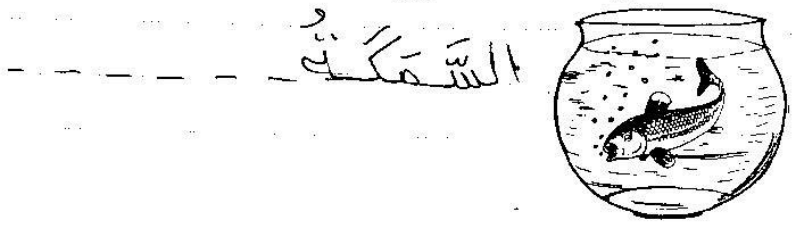 السَّمَكَةُ